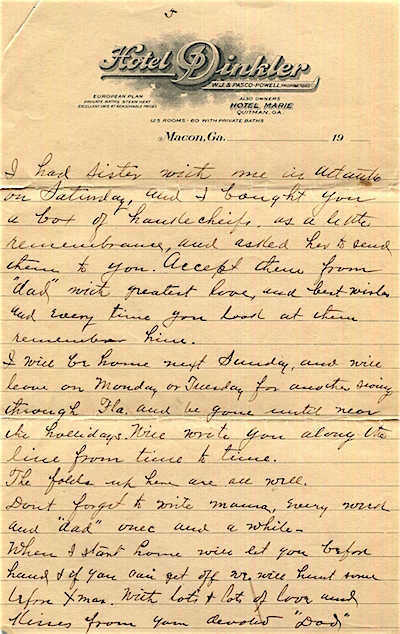 5
Hotel Dinkler
W.J. & PASCO POWELL, PROPRIETORS
EUROPEAN PLAN
PRIVATE BATHS, STEAM HEAT
EXCELLENT CAFE AT REASONABLE PRICES
ALSO OWNERS
HOTEL MARIE
QUITMAN, GA.
123 ROOMS - 60 WITH PRIVATE BATHS
Macon, Ga. 19
I had Sister with me in Atlanta
on Saturday, and I bought you
a box of handkecheifs, as a little
remembrance, and asked her to send
them to you. Accept them from
"dad" with greatest love, and best wishes
and every time you look at them
remember him.
I will be home next Sunday, and will
leave on Monday or Tuesday for another swing
through Fla. and be gone until near
the hollidays. Will write you along the
line from time to time.
The folks up here are all well.
Dont forget to write mama, every week
and "dad" onec and a while -
When I start home will let you before
hand & if you can get off we will hunt some
before Xmas. With lots & lots of love and
Kisses from your devoted "Dad"